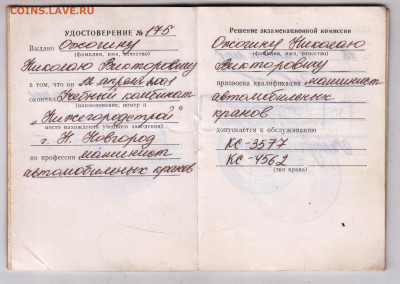 СОВЕТСКАЯ МОНЕТА
COINS.LAVE.RU
УДОСТОВЕРЕНИЕ № 175
Выдано Ожогину
(фамилия, имя, отчество)
Николаю Викторовичу
в том, что он 12 апреля
окончил Учебный комбинат
(наименование, номер и
"Нижегородстрой"
место нахождения учебного заведения)
г. Н. Новгород
по профессии машинист
автомобильных кранов
Решение экзаменационной комиссии
Ожогину Николаю
(фамилия, имя, отчество)
Викторовичу
присвоена квалификация машинист
автомобильных
кранов
допускается к обслуживанию
КС-3577
КС-4562
(тип крана)